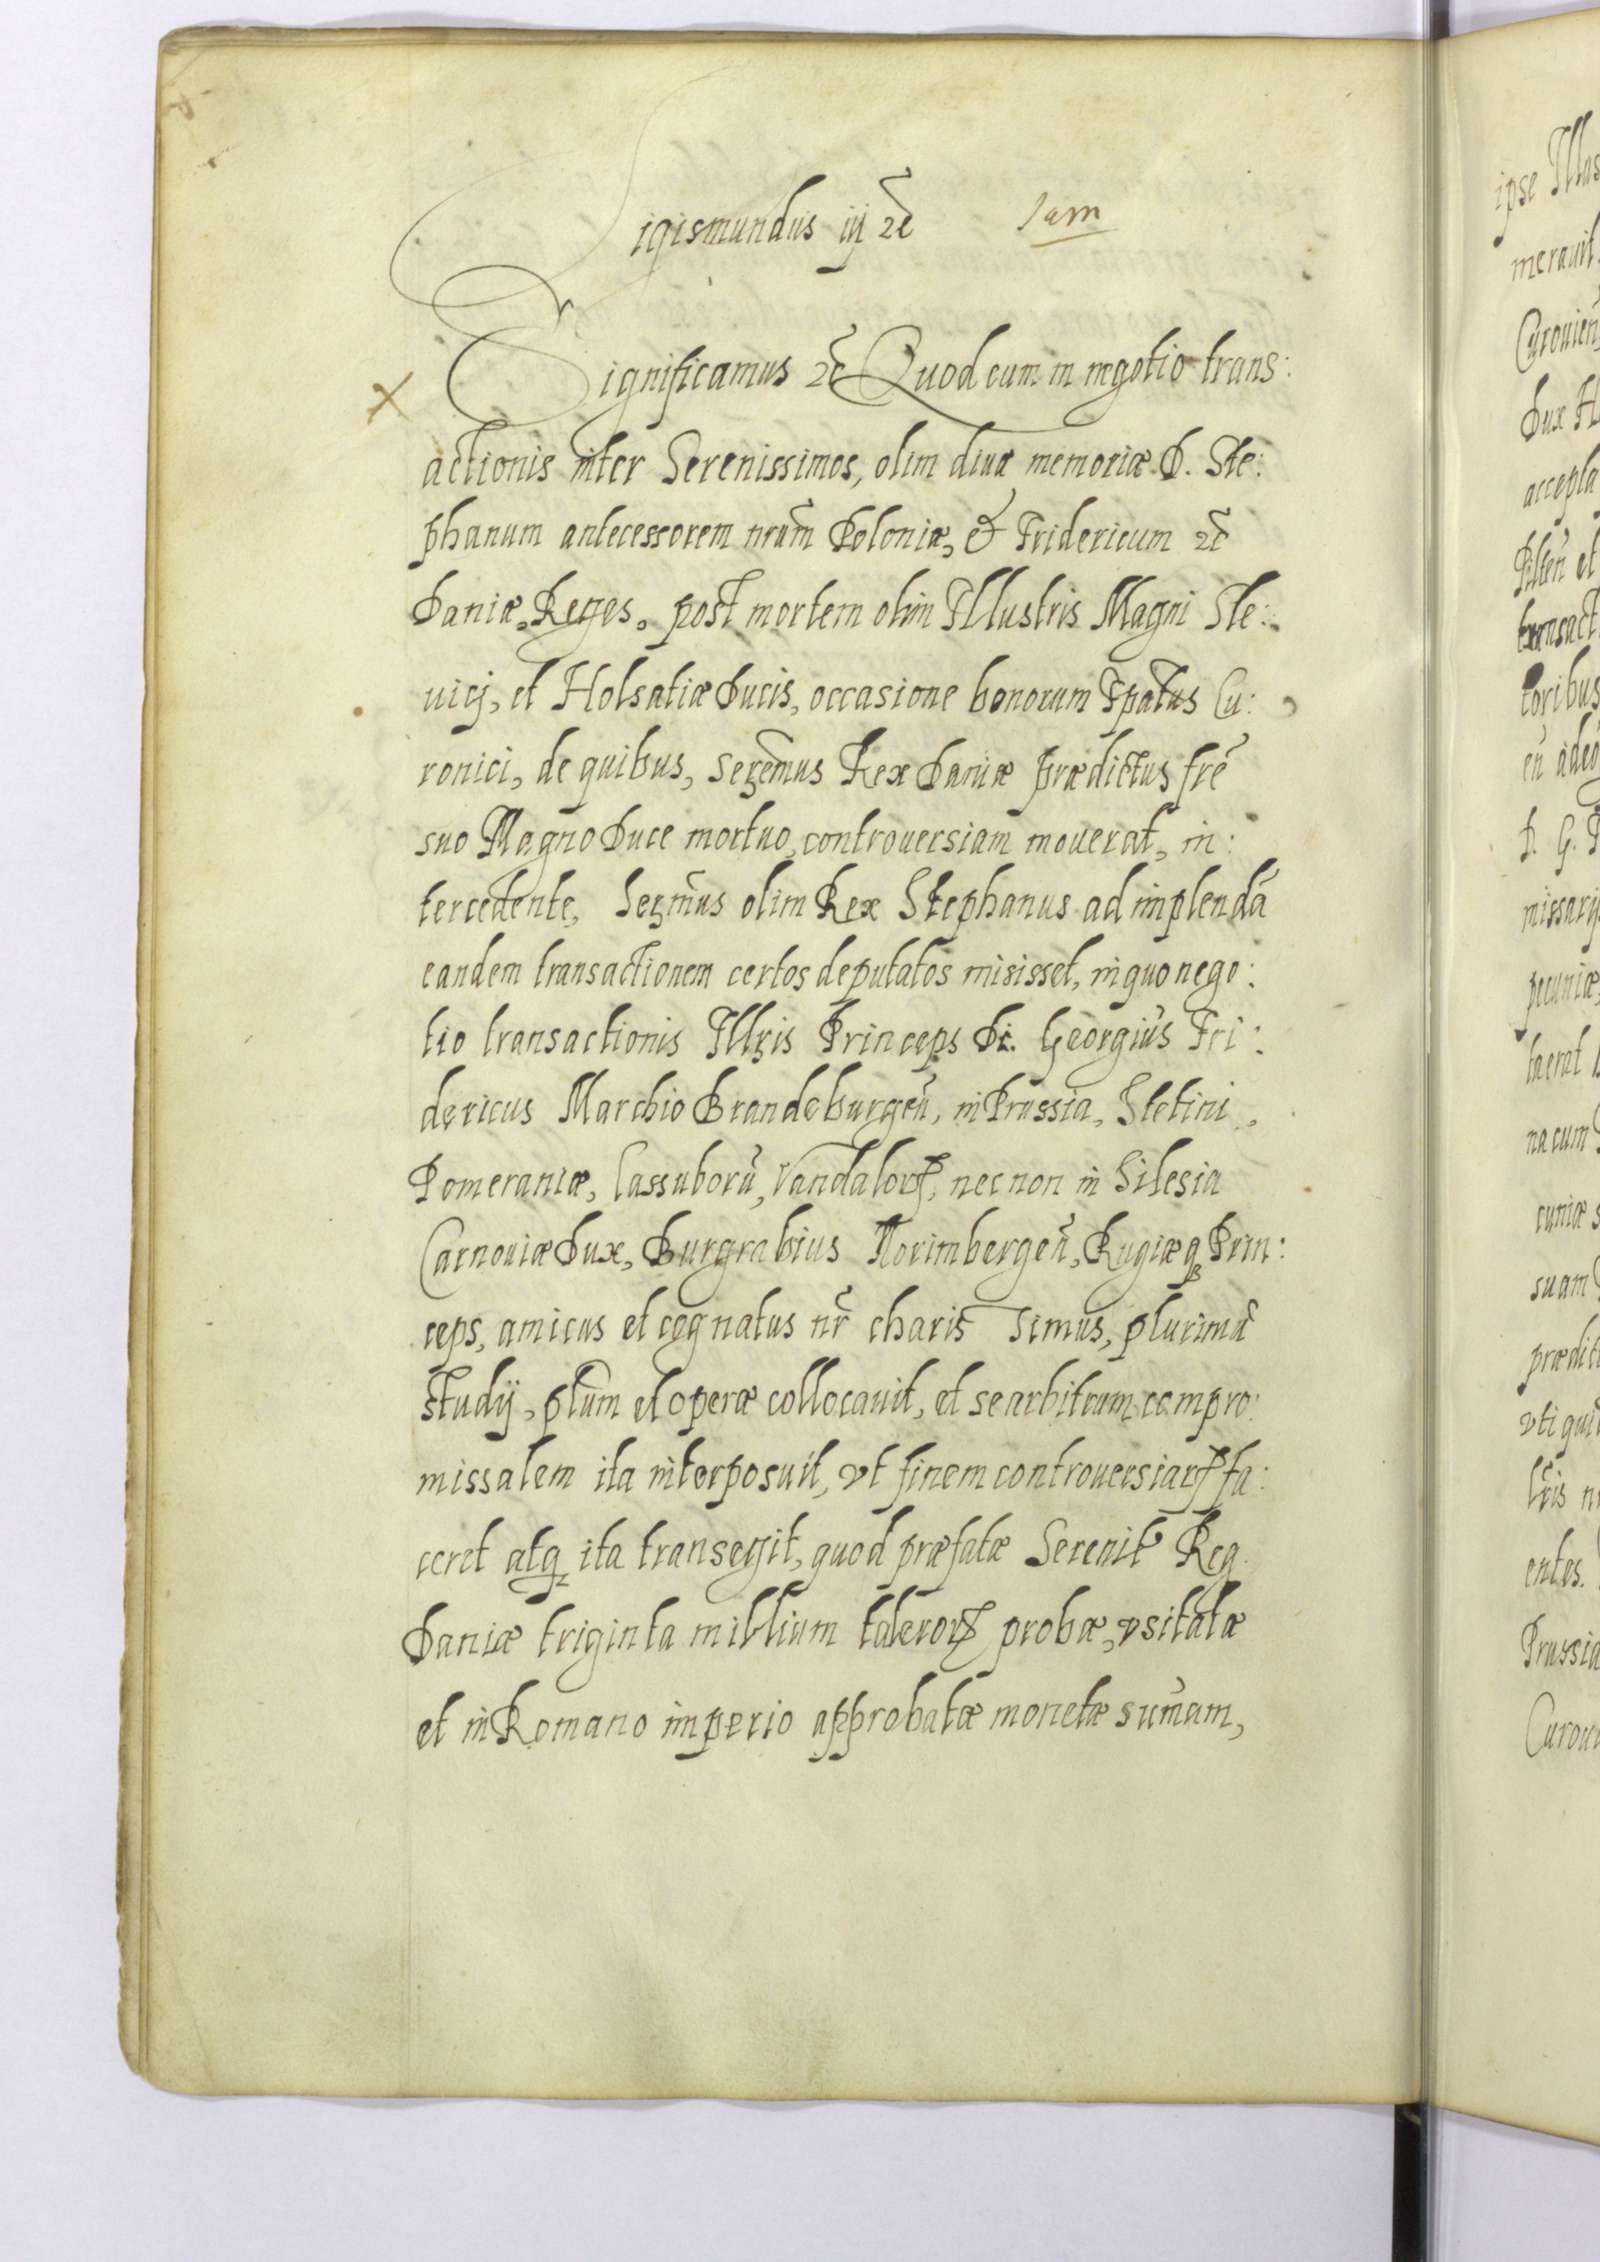 Sigismundus iij &c̄ Iam
Significamus &c̄ Quod cum in negotio trans:
actionis inter Serenissimos, olim diuæ memoriæ D. Ste:
phanum antecessorem nr̄um Poloniæ, & Fridericum &c̄
Daniæ, Reges, post mortem olim Illustris Magni Sle:
uicj, et Holsatiæ Ducis, occasione bonorum Ep̄atus Cu:
ronici, de quibus, Serēmus Rex Daniæ prædictus fr̄e
suo Magno Duce mortuo, controuersiam mouerat, in:
tercedente, Serm̄us olim Rex Stephanus ad implendā
eandem transactionem certos deputatos misisset, in quo nego:
tio transactionis Illris Princeps D. Georgius Fri:
dericus Marchio Brandeburgeñ, in Prussia, Stetini,
Pomeraniæ, Cassuborū, Vandalorꝝ, nec non in Silesia
Carnouiæ Dux, Burgrabius Norimbergeñ, Rugiæqꝫ Prin:
ceps, amicus et cognatus nr̄ charissimus, plurimū
studij, pl̄um et operæ collocauit, et se arbitrum compro:
missalem ita interposuit, vt finem controuersiarꝝ fa:
ceret atqꝫ ita transegit, quod præfatæ Serenit Reg.
Daniæ triginta millium talerorꝝ probæ, vsitatæ
et in Romano imperio approbatæ monetæ sum̄am,
ipse Illus
merauit
Curonien
Dux H
accepta
Pilteñ et
transact
toribus
eñ adeo
D. G. F
missarij
pecuniæ,
taerat
na cum
cuniæ s
suam
prædict
vti qui
lr̄is n
entes.
Prussia
Curoni